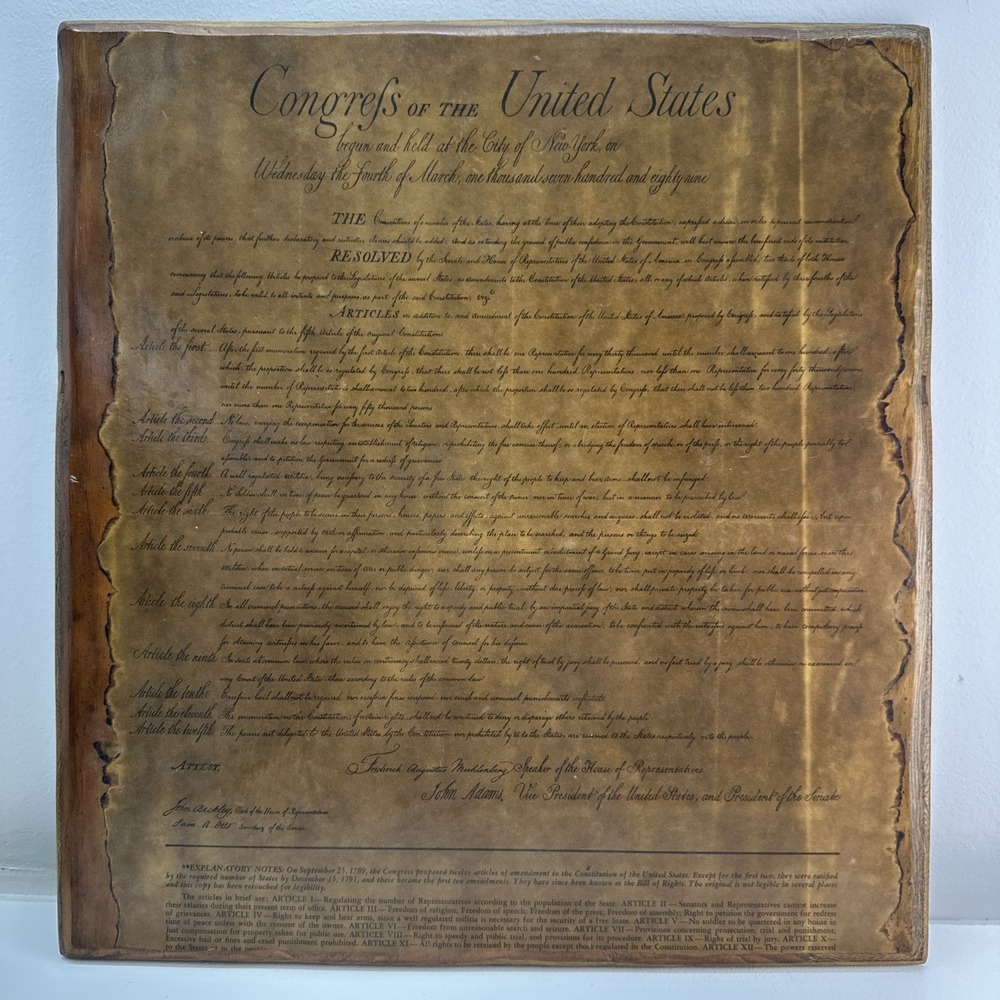 Congreſs OF THE United States
begun and held at the City of New-York, on
Wednesday the Fourth of March, one thousand seven hundred and eighty nine
THE Conventions of a number of the States, having at the time of their adopting the Constitution, expressed a desire, in order to prevent misconstruction
or abuse of its powers, that further declaratory and restrictive clauses should be added: And as extending the ground of public confidence in the Government, will best ensure the beneficent ends of its institution
RESOLVED by the Senate and House of Representatives of the United States of America, in Congreſs aſsembled, two thirds of both Houses
concurring that the following Articles be proposed to the Legislatures of the several States, as amendments to the Constitution of the United States, all or any of which Articles, when ratified by three fourths of the
said Legislatures, to be valid to all intents and purposes, as part of the said Constitution; vizt
ARTICLES in addition to, and Amendment of the Constitution of the United States of America, proposed by Congreſs, and ratified by the Legislatures
of the several States, pursuant to the fifth Article of the original Constitution.
Article the first. After the first enumeration required by the first Article of the Constitution, there shall be one Representative for every thirty thousand, until the number shall amount to one hundred, after
which, the proportion shall be so regulated by Congreſs, that there shall be not leſs than one hundred Representatives, nor leſs than one Representative for every forty thousand persons,
until the number of Representatives shall amount to two hundred, after which the proportion shall be so regulated by Congreſs, that there shall not be leſs than two hundred Representatives,
nor more than one Representative for every fifty thousand persons
Article the second No law, varying the compensation for the services of the Senators and Representatives, shall take effect, until an election of Representatives shall have intervened.
Article the third. Congreſs shall make no law respecting an establishment of religion, or prohibiting the free exercise thereof; or abridging the freedom of speech, or of the preſs, or the right of the people peaceably to
aſsemble, and to petition the Government for a redreſs of grievances
Article the fourth A well regulated militia, being neceſsary to the security of a free State, the right of the people to keep and bear arms, shall not be infringed.
Article the fifth No Soldier shall, in time of peace be quartered in any house, without the consent of the owner, nor in time of war, but in a manner to be prescribed by law
Article the sixth The right of the people to be secure in their persons, houses, papers, and effects, against unreasonable searches and seizures, shall not be violated, and no warrants shall iſsue, but upon
probable cause, supported by oath or affirmation, and particularly describing the place to be searched, and the persons or things to be seized
Article the seventh No person shall be held to answer for a capital, or otherwise infamous crime, unleſs on a presentment or indictment of a Grand Jury, except in cases arising in the land or naval forces, or in the
Militia, when in actual service in time of War or public danger; nor shall any person be subject for the same offence to be twice put in jeopardy of life or limb, nor shall be compelled in any
criminal case to be a witneſs against himself, nor be deprived of life, liberty, or property, without due proceſs of law; nor shall private property be taken for public use without just compensation
Article the eighth In all criminal prosecutions, the accused shall enjoy the right to a speedy and public trial, by an impartial jury of the State and district wherein the crime shall have been committed, which
district shall have been previously ascertained by law, and to be informed of the nature and cause of the accusation; to be confronted with the witneſses against him; to have compulsory proceſs
for obtaining witneſses in his favor, and to have the aſsistance of counsel for his defence
Article the ninth In suits at common law, where the value in controversy shall exceed twenty dollars, the right of trial by jury shall be preserved, and no fact tried by a jury, shall be otherwise re-examined in
any Court of the United States, than according to the rules of the common law
Article the tenth Exceſsive bail shall not be required, nor exceſsive fines imposed, nor cruel and unusual punishments inflicted.
Article the eleventh The enumeration in the Constitution, of certain rights, shall not be construed to deny or disparage others retained by the people
Article the twelfth. The powers not delegated to the United States by the Constitution, nor prohibited by it to the States, are reserved to the States respectively, or to the people.
ATTEST,
Frederick Augustus Muhlenberg Speaker of the House of Representatives
John Adams, Vice President of the United States, and President of the Senate
John Beckley, Clerk of the House of Representatives
Sam. A. Otis Secretary of the Senate
**EXPLANATORY NOTES: On September 25, 1789, the Congress proposed twelve articles of amendment to the Constitution of the United States. Except for the first two, they were ratified
by the required number of States by December 15, 1791, and these became the first ten amendments. They have since been known as the Bill of Rights. The original is not legible in several places
and this copy has been retouched for legibility.
The articles in brief are: ARTICLE I—Regulating the number of Representatives according to the population of the State. ARTICLE II—Senators and Representatives cannot increase
their salaries during their present term of office. ARTICLE III—Freedom of religion; Freedom of speech; Freedom of the press; Freedom of assembly; Right to petition the government for redress
of grievances. ARTICLE IV—Right to keep and bear arms, since a well regulated militia is necessary for the security of a free State. ARTICLE V—No soldier to be quartered in any house in
time of peace unless with the consent of the owner. ARTICLE VI—Freedom from unreasonable search and seizure. ARTICLE VII—Provisions concerning prosecution, trial and punishment;
just compensation for property taken for public use. ARTICLE VIII—Right to speedy and public trial, and provisions for its procedure. ARTICLE IX—Right of trial by jury. ARTICLE X—
Excessive bail or fines and cruel punishment prohibited. ARTICLE XI—All rights to be retained by the people except thus regulated in the Constitution. ARTICLE XII—The powers reserved
to the States or to the people.